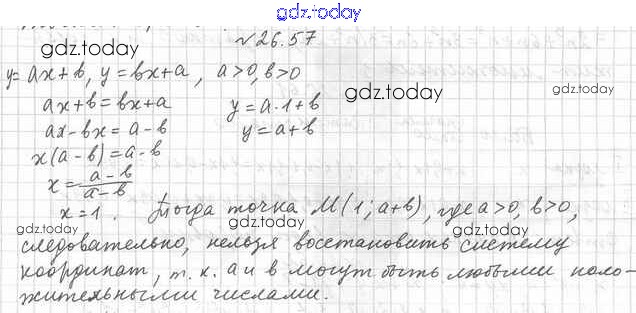 gdz.today
№ 26.57
gdz.today
y = ax + b, y = bx + a, a > 0, b > 0
gdz.today
ax + b = bx + a y = a · 1 + b
ax - bx = a - b y = a + b
x(a - b) = a - b
x = a - b / a - b
x = 1. Тогда точка M(1; a+b), где a > 0, b > 0,
gdz.today gdz.today gdz.today
следовательно, нельзя восстановить систему
координат, т. к. a и b могут быть любыми поло-
жительными числами.